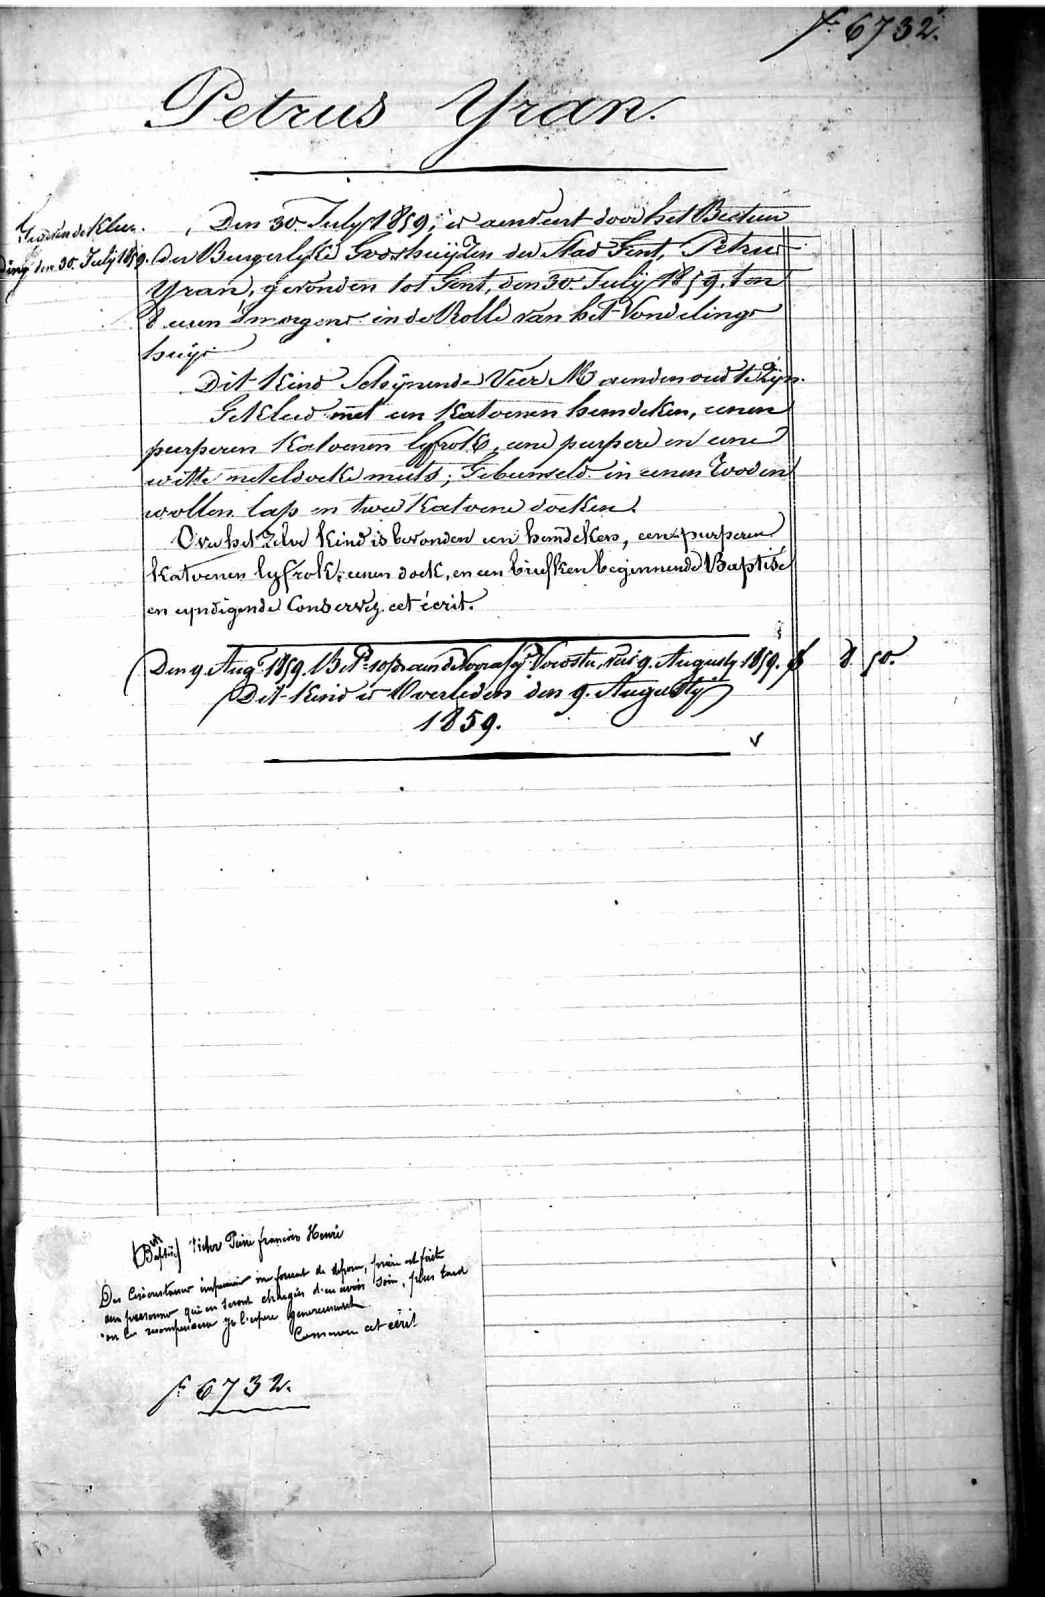 f° 6732.
Petrus Yran.
Gezien de Klee-
ding den 30. July 1859.
Den 30 July 1859, is aenveert door het Bestuer
der Burgerlyke Godshuyzen der Stad Gent, Petrus
Yran, gevonden tot Gent, den 30 July 1859, ten
8 uren 'smorgens in de Rolle van het Vondelings
huys
Dit Kind Schijnende Vier Maenden oud te Zijn.
Gekleed met een Katoenen hemdeken, eenen
purperen Katoenen lyfrok, eene purpere en eene
witte neteldoeke muts; Gebunseld in eenen Rooden
wollen lap en twee Katoene doeken.
Over het Zelve Kind is bevonden een hemdeken, eene purperen
Katoenen lyfrok, eenen doek, en een briefken beginnende Baptisé
en eyndigende Conservez cet écrit.
Den 9. Augt 1859. Voorste, 9. Augusty 1859. f 8 50.
Dit Kind is Overleden den 9. Augusty
1859.
(Baptisé) Victor Pierre francois Henri
Des Circonstances forcent de déposer, prière est faite
aux personnes qui en seront chargés d'en avoir soin, plus tard
on les recompensera je l'espere genereusement
Conservez cet écrit
f° 6732.